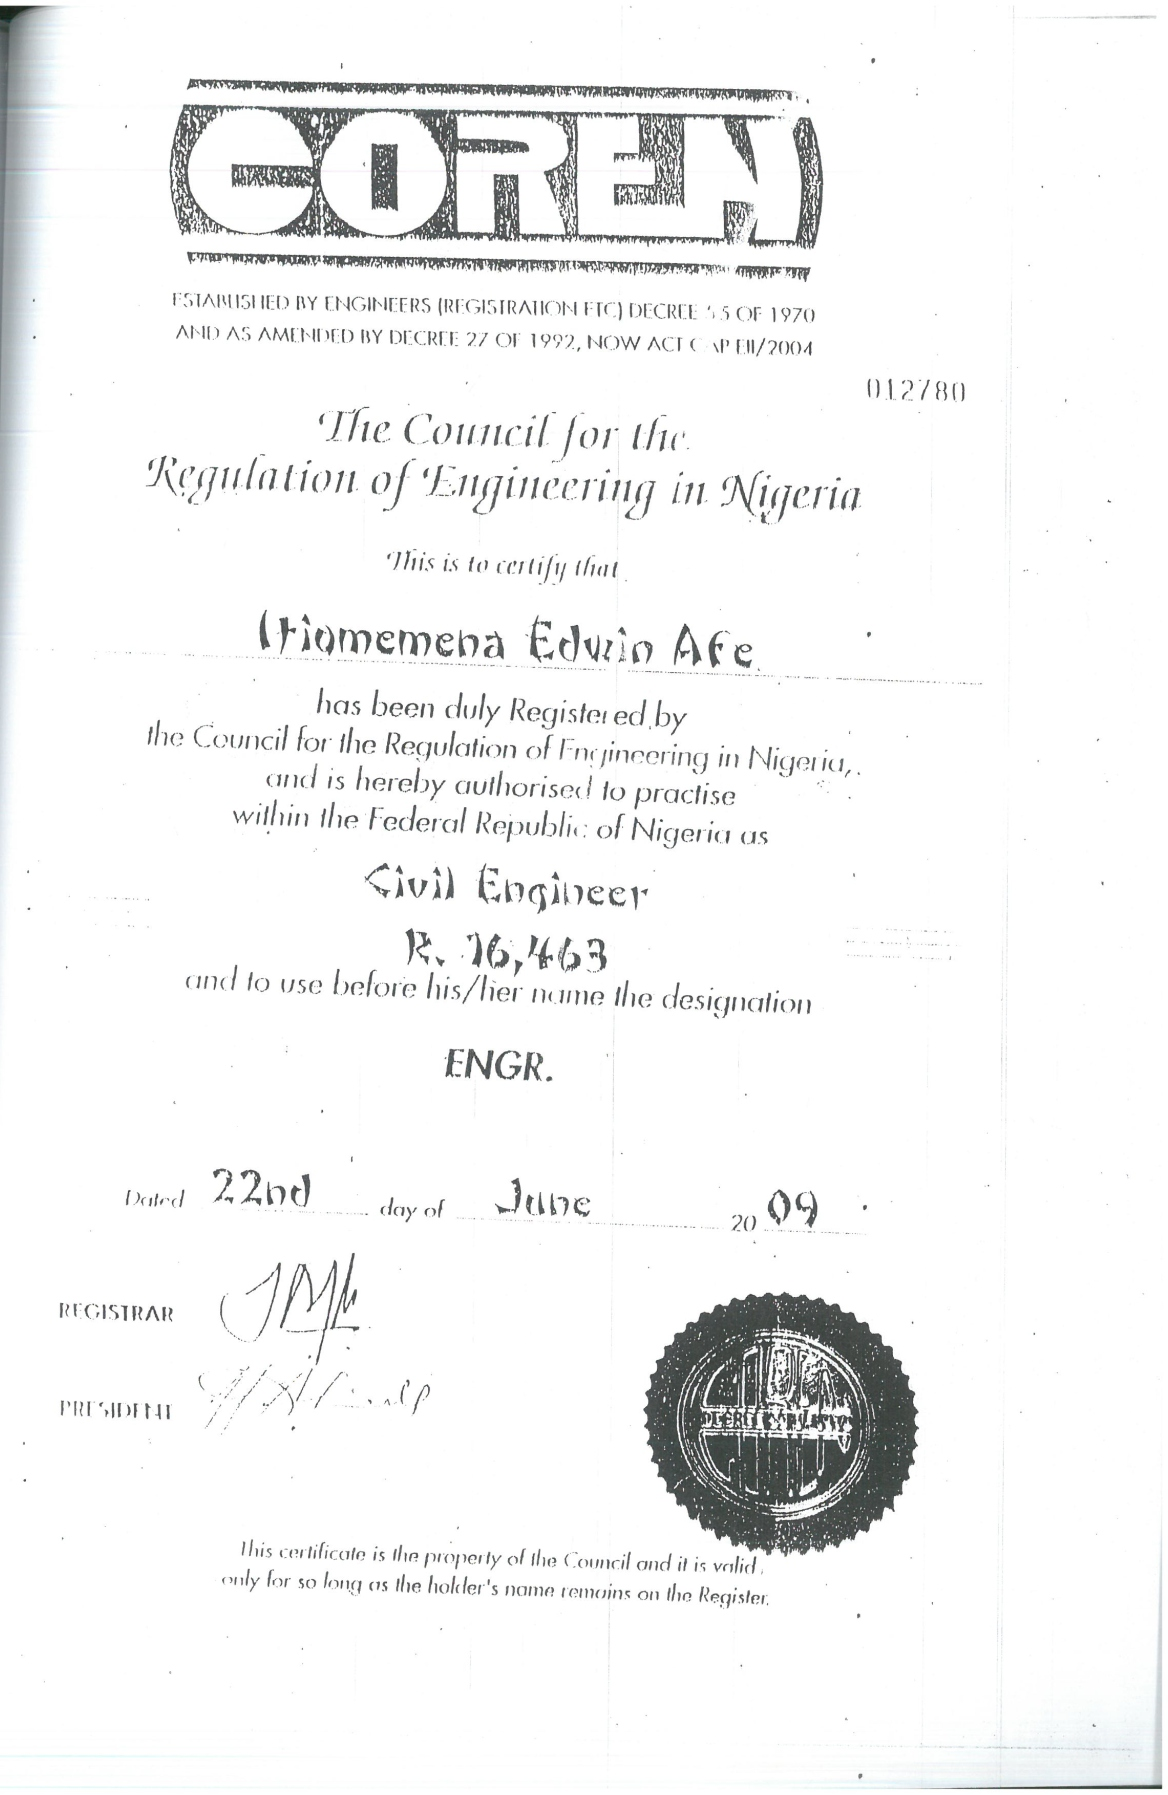 COREN
ESTABLISHED BY ENGINEERS (REGISTRATION ETC) DECREE 55 OF 1970
AND AS AMENDED BY DECREE 27 OF 1992, NOW ACT CAP E11/2004
012780
The Council for the
Regulation of Engineering in Nigeria
This is to certify that
Edwin
has been duly Registered by
the Council for the Regulation of Engineering in Nigeria,
and is hereby authorised to practise
within the Federal Republic of Nigeria as
Civil Engineer
R. 16,463
and to use before his/her name the designation
ENGR.
Dated 22nd day of June 2009
REGISTRAR
PRESIDENT
This certificate is the property of the Council and it is valid
only for so long as the holder's name remains on the Register.